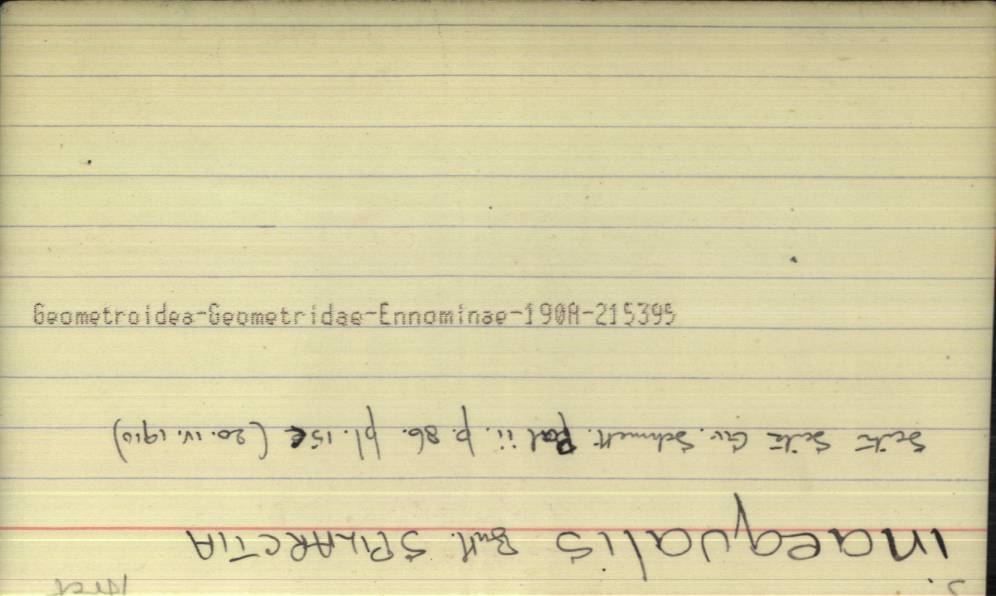 Geometroidea-Geometridae-Ennominae-190A-215395
Arct
inaequalis Butl. SPILARCTIA
Seitz Gr. Schmett. Pal ii. p. 86. pl. 15 (20. iv. 1910)